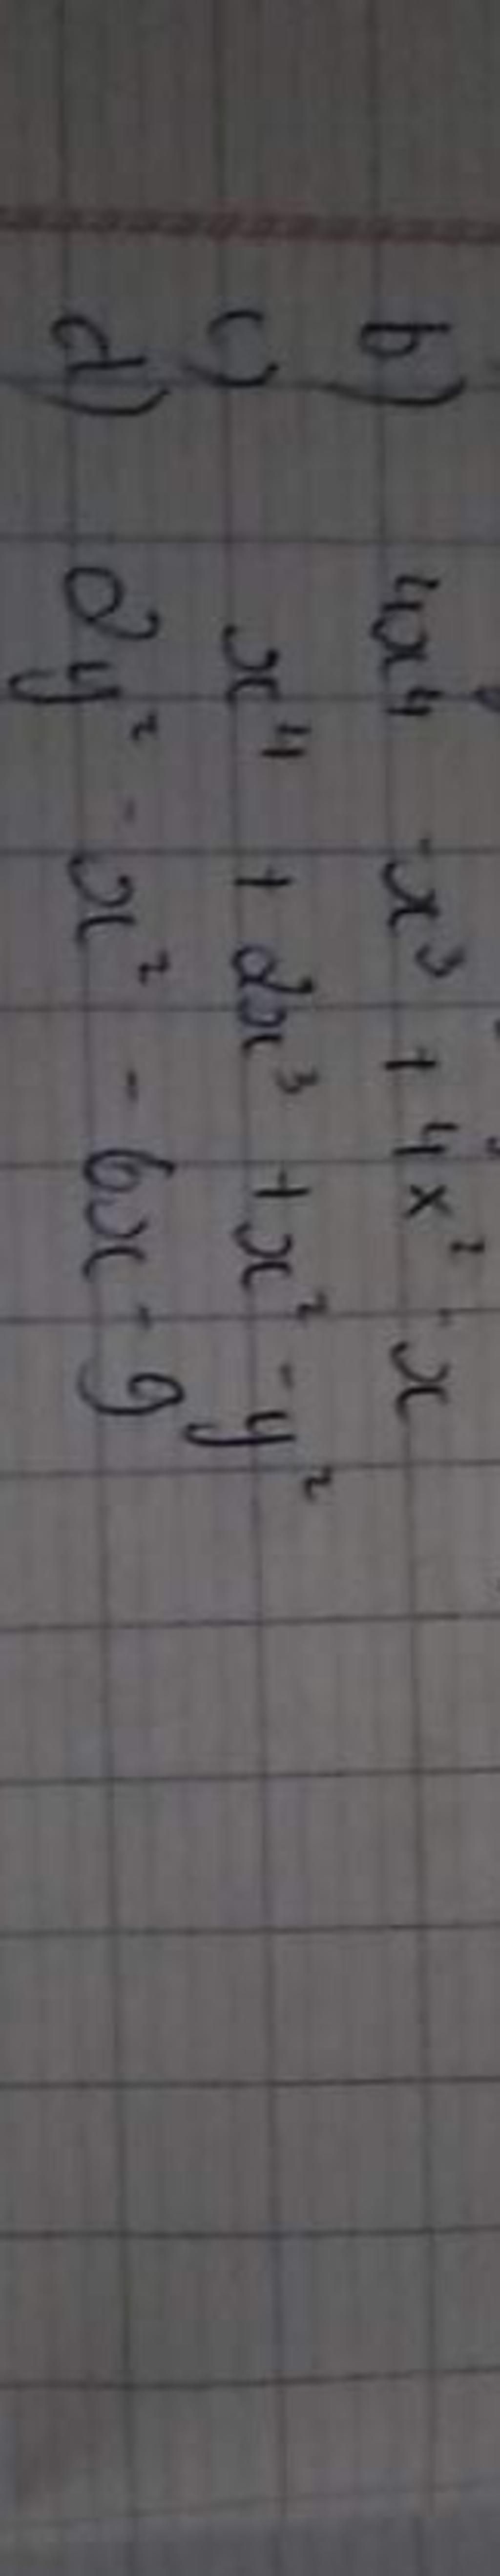 b) 4x⁴ - x³ + 4x² - x
c) x⁴ + 2x³ + x² - y²
d) 2y² - x² - 6x - 9